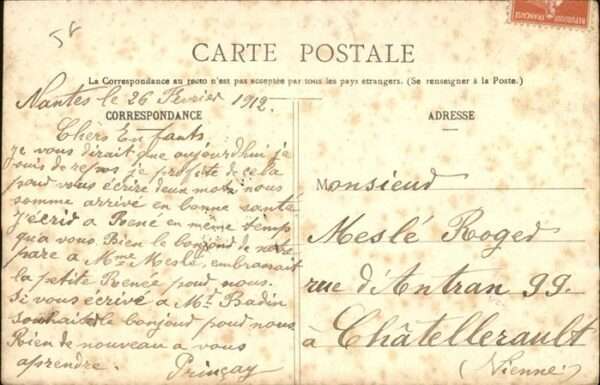 58
RÉPUBLIQUE FRANÇAISE
CARTE POSTALE
La Correspondance au recto n'est pas acceptée par tous les pays étrangers. (Se renseigner à la Poste.)
Nantes le 26 Février 1912.
CORRESPONDANCE
Chers Enfants
Je vous dirait que aujourd'hui je
suis de repos je profite de cela
pour vous écrire deux mots nous
somme arrivé en bonne santé
J'écrid a René en même temp
qu'a vous. Bien le bonjour de notre
pare a Mme Meslé, embrassait
la petite Renée pour nous.
Si vous écrivé a Mr Badin
souhaité le bonjour pour nous
Rien de nouveau a vous
aprendre. Prinçay
ADRESSE
Monsieur
Meslé Roger
rue d'Antran 99.
à Châtellerault
(Vienne)